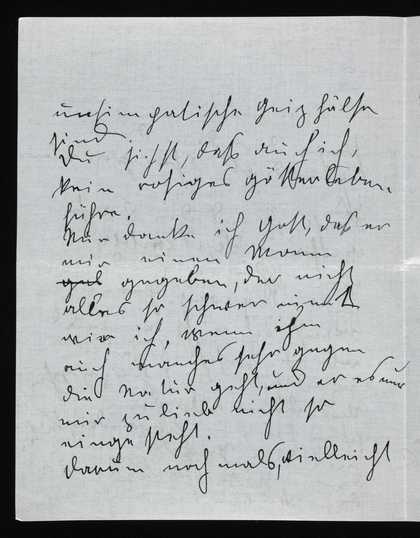 unsimpatische Geizhälse
sind
Du siehst, daß auch ich,
kein rosiges götterleben.
führe.
Nur danke ich Gott, daß er
mir einen Mann
gegeben, der nicht
alles so schwer nimmt
wie ich, wenn ihm
auch manches sehr gegen
die Natur geht, und er es nur
mir zuliebe nicht so
eingesteht.
Darum nochmals, vielleicht